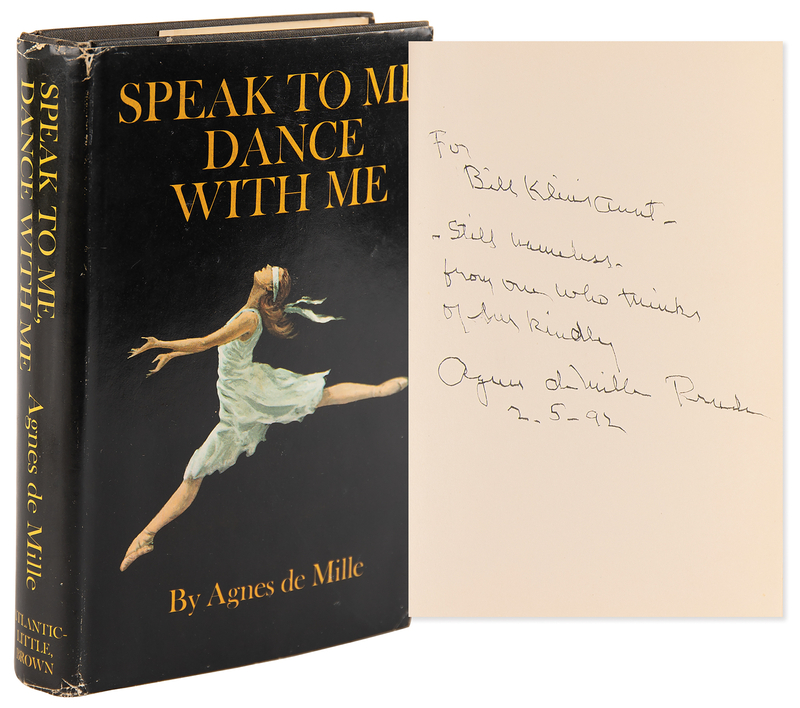 SPEAK TO ME,
DANCE WITH ME
Agnes de Mille
ATLANTIC-
LITTLE,
BROWN
SPEAK TO ME
DANCE
WITH ME
By Agnes de Mille
For
Bill Klein's aunt -
- Still nameless -
from one who thinks
of her kindly
Agnes de Mille Prude
2-5-92